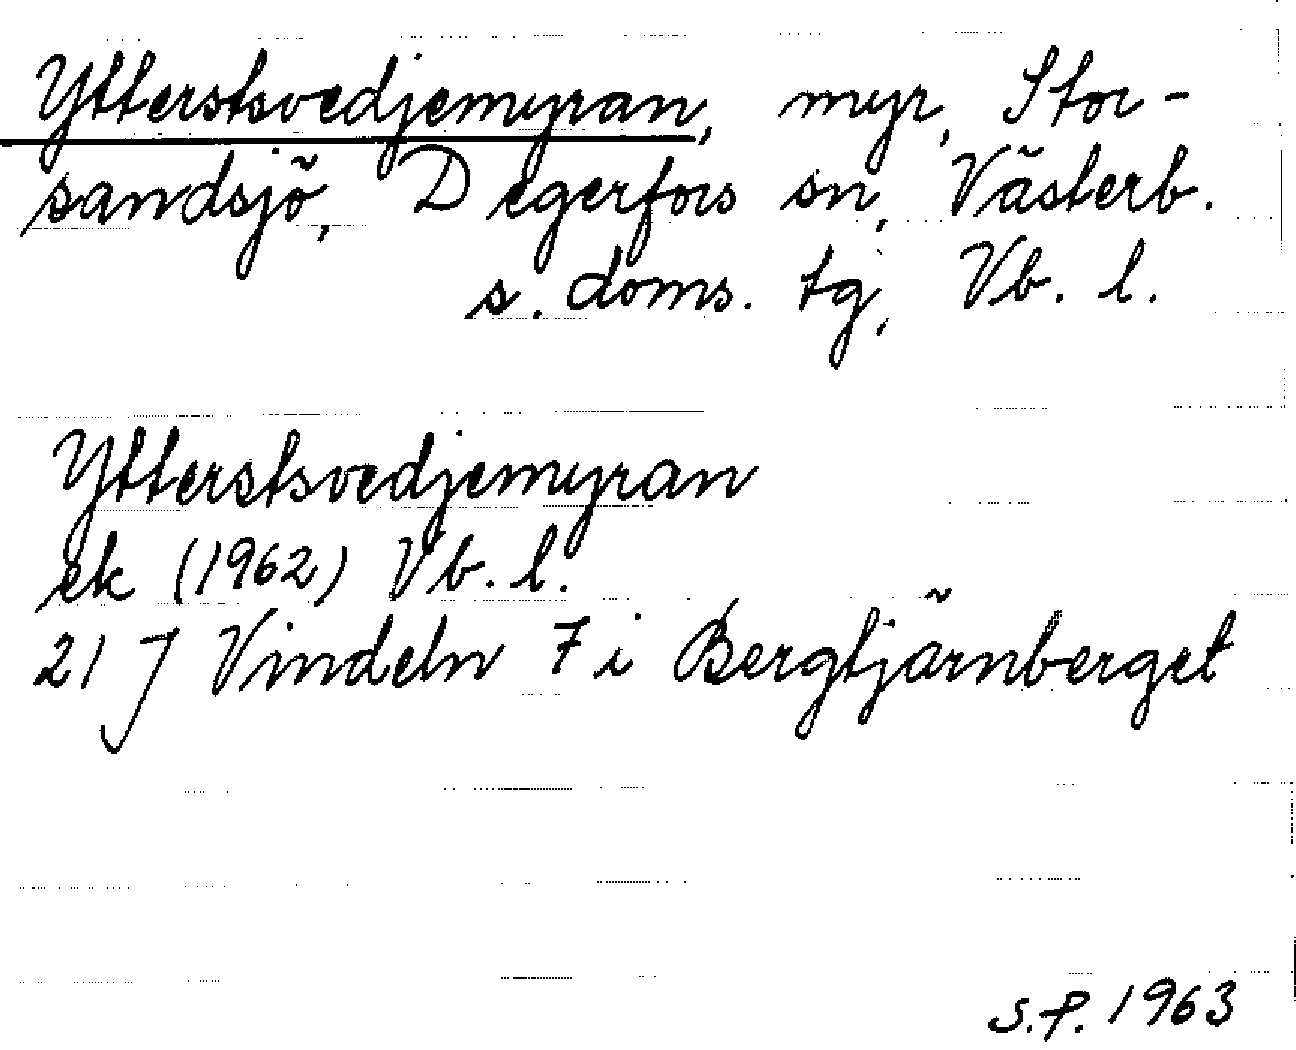 Ytterstsvedjemyran, myr, Stor-
sandsjö, Degerfors sn, Västerb.
s. doms. tg, Vb. l.
Ytterstsvedjemyran
ek (1962) Vb. l.
21 J Vindeln 7 i Bergtjärnberget
S.P. 1963